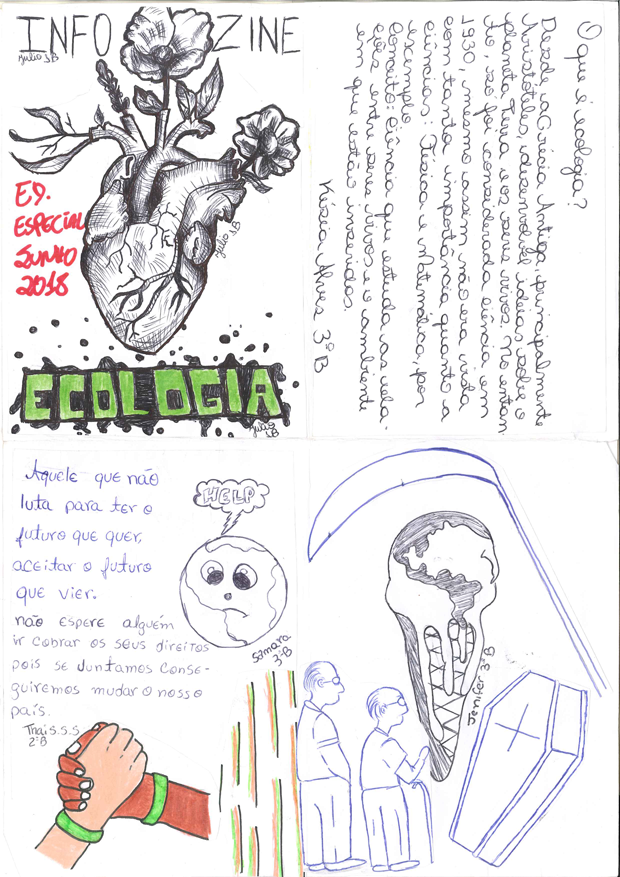 INFO ZINE
Julio 3B
ED.
ESPECIAL
JUNHO
2018
Julio 3.B
ECOLOGIA
Julio
3B
O que é ecologia?
Desde a Grécia Antiga, principalmente
Aristóteles, desenvolvel idéia sobre o
planeta Terra e os seres vivos. No entan
to, so foi considerada ciência em
1930, mesmo assim, não era vista
com tanta importância quanto a
ciências: Física e Matemática, por
exemplo
Conceito: Ciência que estuda as rela-
ções entre seres vivos e o ambiente
em que estão inseridos.
Alves 3ºB
Aquele que não
luta para ter o
futuro que quer,
aceitar o futuro
que vier.
não espere alguém
ir cobrar os seus direitos
pois se Juntamos Conse-
guiremos mudar o nosso
país.
Thais.s.s
2ºB
HELP
Samara
3ºB
Jenifer 3ºB